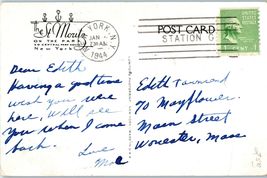 The St. Moritz
ON THE PARK
New York
YORK, N.Y.
JAN
1944
POST CARD
STATION
1 CENT 1
Dear Edith
Having a good time
wish you were
here, will see
you when I come
back.
Love
Edith Townsend
70 Mayflower
Main Street
Worcester, Mass